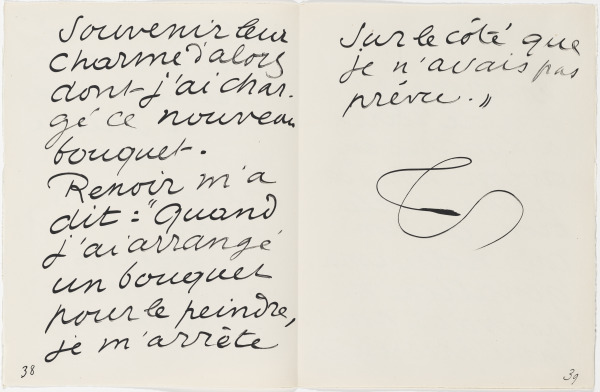 Souvenir leur
charme d'alors
dont j'ai char-
gé ce nouveau
bouquet.
Renoir m'a
dit : "Quand
j'ai arrangé
un bouquet
pour le peindre,
je m'arrête
38
sur le côté que
je n'avais pas
prévu. "
39